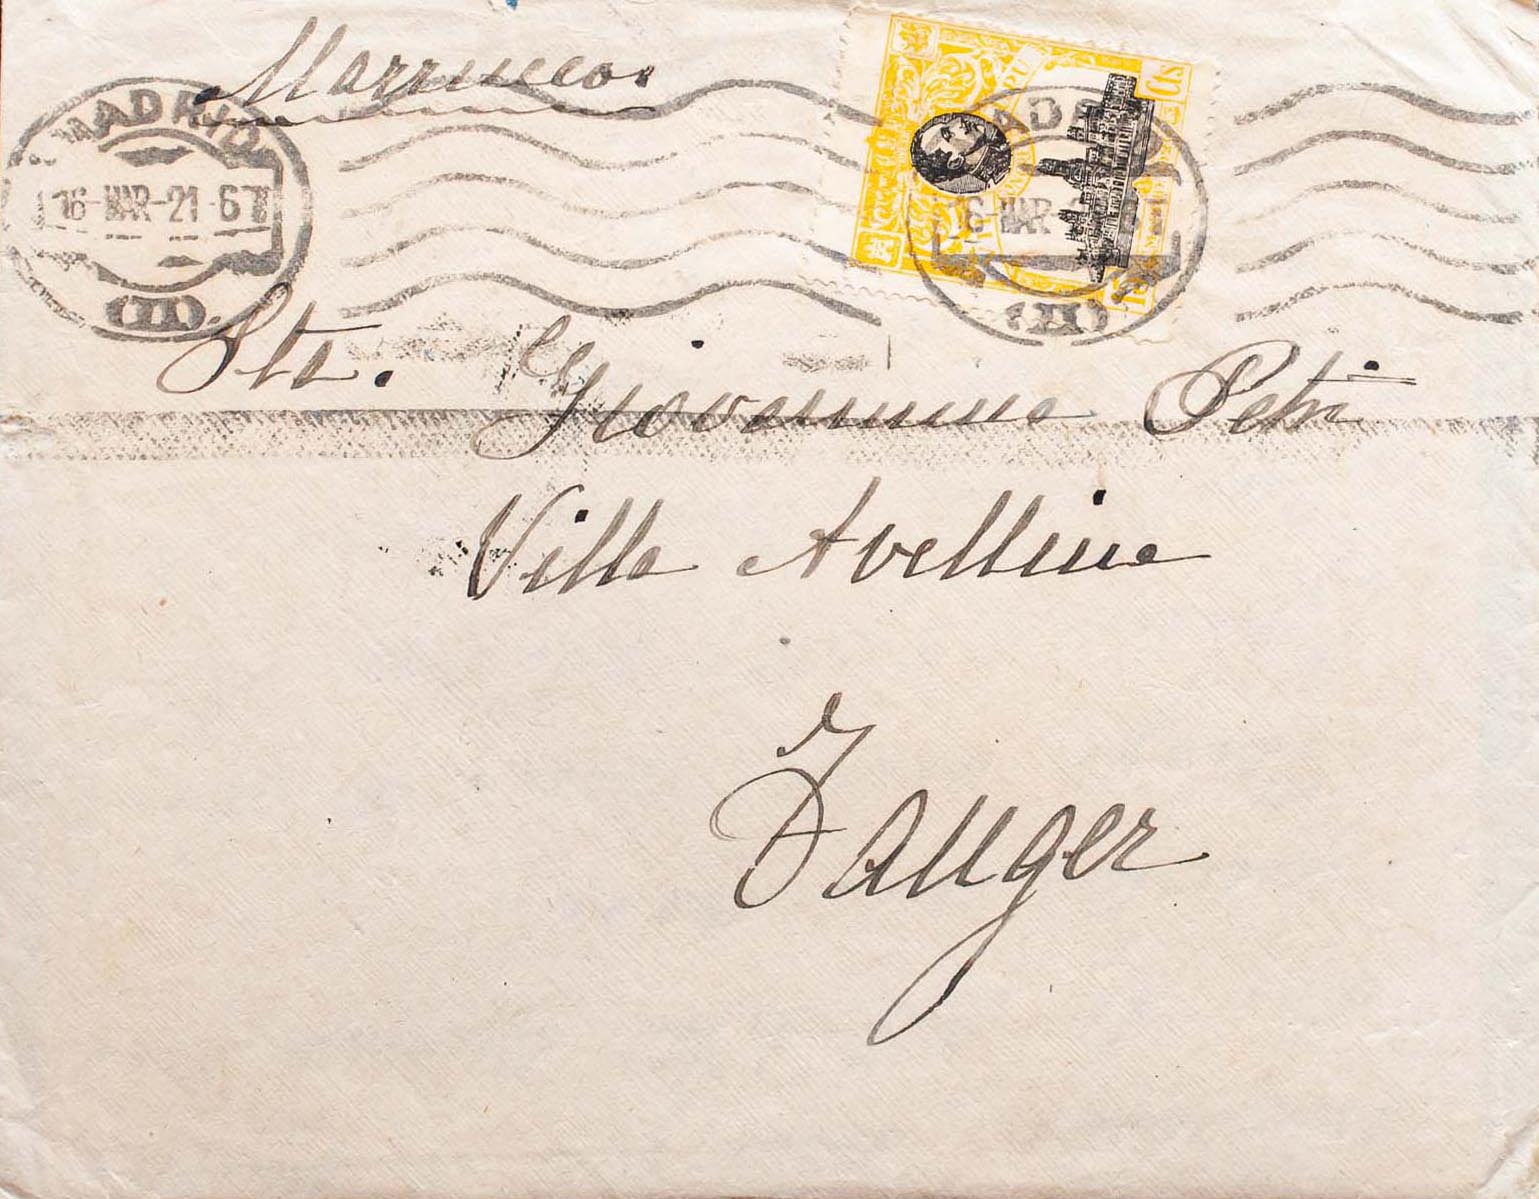 Marruecos
MADRID
16-MAR-21-6T
(II)
15 Cts
MADRID
16-MAR-21
(II)
Sta. Giovannina Petri
Villa Avellina
Tanger